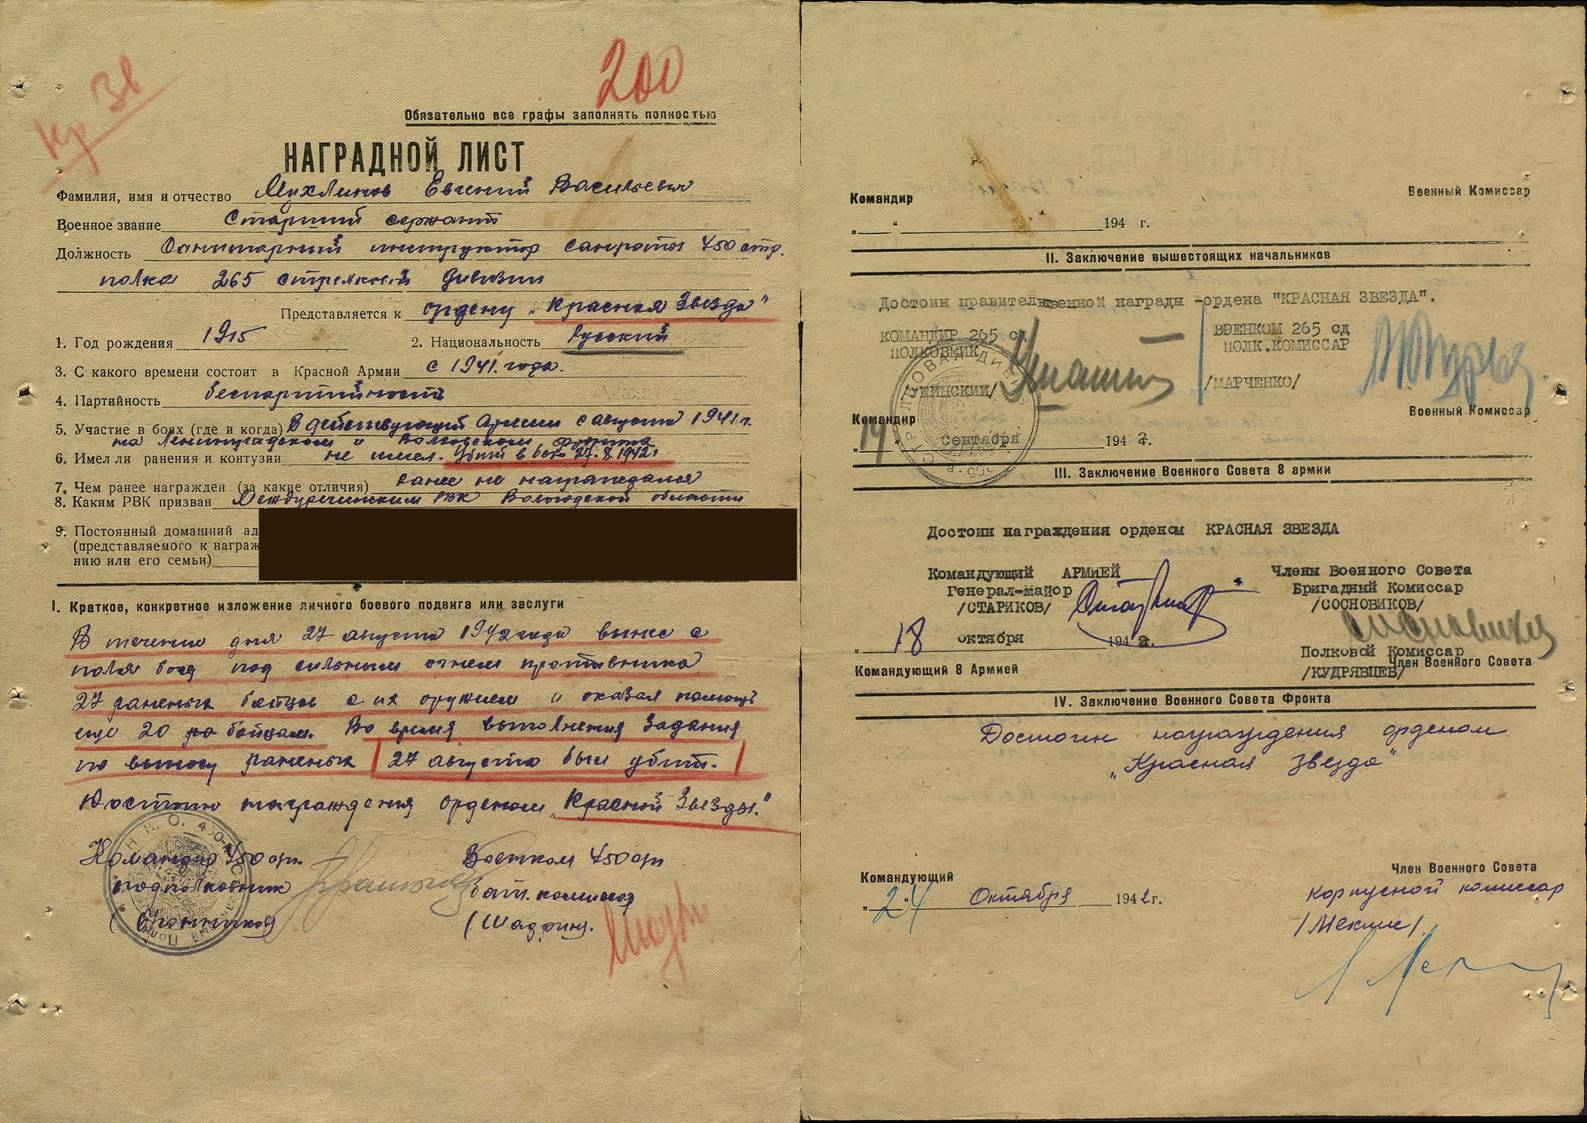 Кр Зв
200
Обязательно все графы заполнять полностью
НАГРАДНОЙ ЛИСТ
Фамилия, имя и отчество Михлинов Евгений Васильевич
Военное звание Старший сержант
Должность Санитарный инструктор санроты 450 стр.
полка 265 стрелковой дивизии
Представляется к ордену „Красная Звезда"
1. Год рождения 1915 2. Национальность Русский
3. С какого времени состоит в Красной Армии с 1941 года.
4. Партийность беспартийность
5. Участие в боях (где и когда) В действующей Армии с августа 1941 г.
на Ленинградском и Волховском фронте
6. Имел ли ранения и контузии не имел. Убит в бою 27.8.1942 г.
7. Чем ранее награжден (за какие отличия) ранее не награждался
8. Каким РВК призван Междуреченским РВК Вологодской области
9. Постоянный домашний ад
(представляемого к награж
нию или его семьи)
I. Краткое, конкретное изложение личного боевого подвига или заслуги
В течении дня 27 августа 1942 года вынес с
поля боя под сильным огнем противника
27 раненых бойцов с их оружием и оказал помощь
еще 20 бойцам. Во время выполнения задания
по выносу раненых 27 августа был убит.
Достоин награждения орденом „Красной Звезды."
Командир 450 сп. Военком 450 сп
подполковник бат. комиссар
(Шадрин).
Командир Военный Комиссар
„ " 194 г.
II. Заключение вышестоящих начальников
Достоин правительственной награды -ордена "КРАСНАЯ ЗВЕЗДА".
КОМАНДИР 265 сд. ВОЕНКОМ 265 сд
ПОЛКОВНИК ПОЛК.КОМИССАР
/УШИНСКИЙ/ /МАРЧЕНКО/
Командир Военный Комиссар
„19 Сентября 1942г.
III. Заключение Военного Совета 8 армии
Достоин награждения орденом КРАСНАЯ ЗВЕЗДА
Командующий АРМИЕЙ Члены Военного Совета
Генерал-майор Бригадный Комиссар
/СТАРИКОВ/ /СОСНОВИКОВ/
„18 октября 1942г.
Полковой Комиссар
Командующий 8 Армией /КУДРЯВЦЕВ/ Член Военного Совета
IV. Заключение Военного Совета Фронта
Достоин награждения орденом
„Красная Звезда"
Член Военного Совета
Командующий корпусной комиссар
„24" Октября 1942г. /Мехлис/.